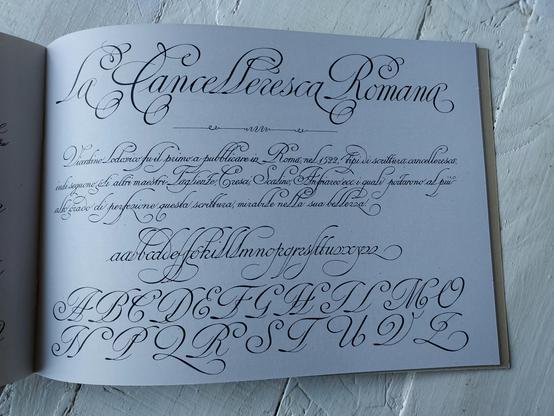 La Cancelleresca Romana
Vicentino Lodovico fu il primo a pubblicare in Roma, nel 1522, tipi di scrittura cancelleresca,
indi seguono gli altri maestri Tagliente, Cresci, Scalino, Amfiareo ecc. i quali portarono al più
alto grado di perfezione questa scrittura, mirabile nella sua bellezza.
A B C D E F G H I L M O
N P Q R S T U V Z